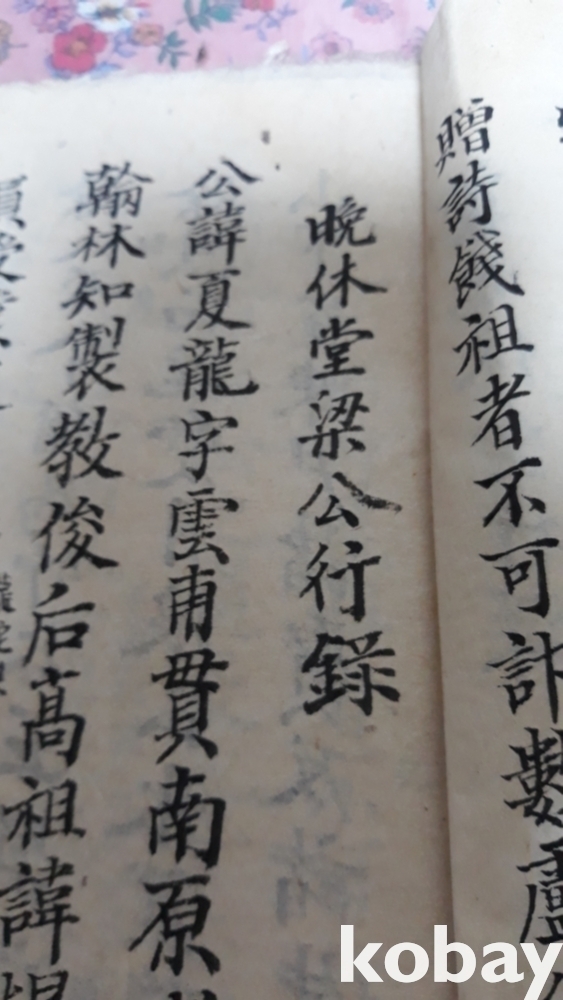 贈詩餞祖者不可計數盧
晩休堂梁公行錄
公諱夏龍字雲甫貫南原
翰林知製敎俊后高祖諱
kobay